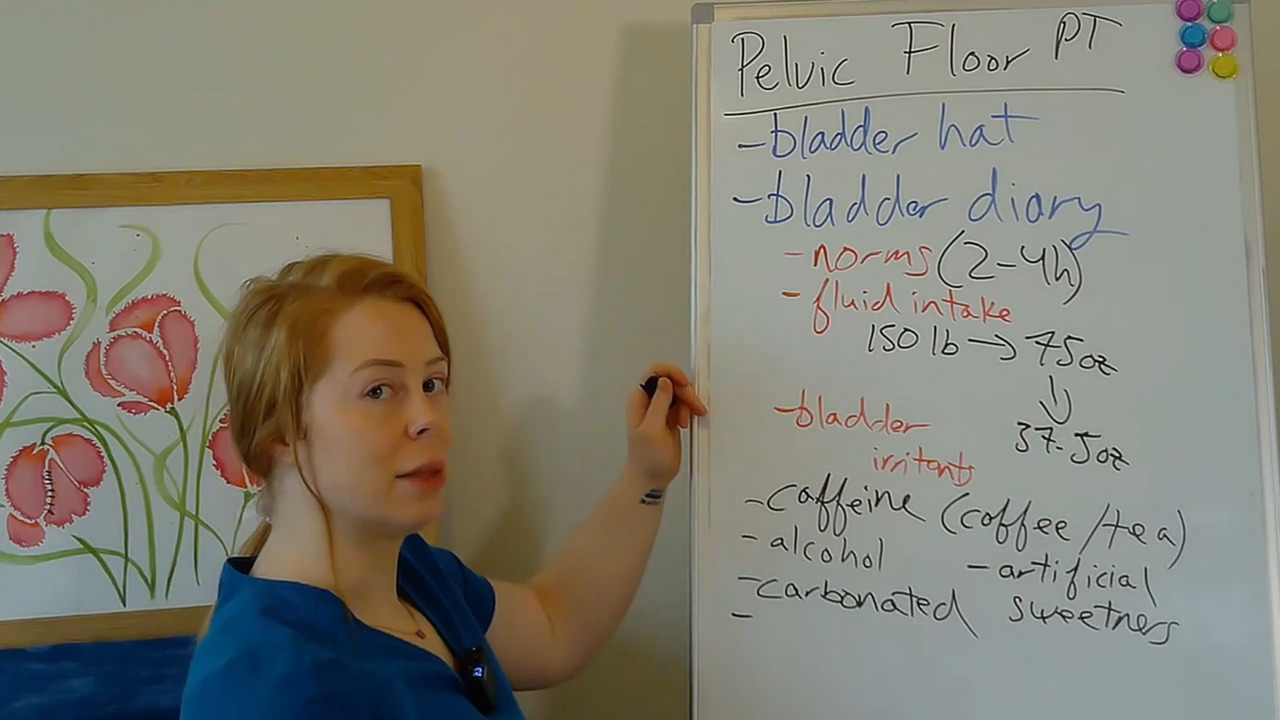 Pelvic Floor PT
- bladder hat
- bladder diary
- norms (2-4h)
- fluid intake
150 lb → 75oz
↓
37.5oz
- bladder
irritants
- caffeine (coffee/tea)
- alcohol
- artificial
sweetners
- carbonated
-